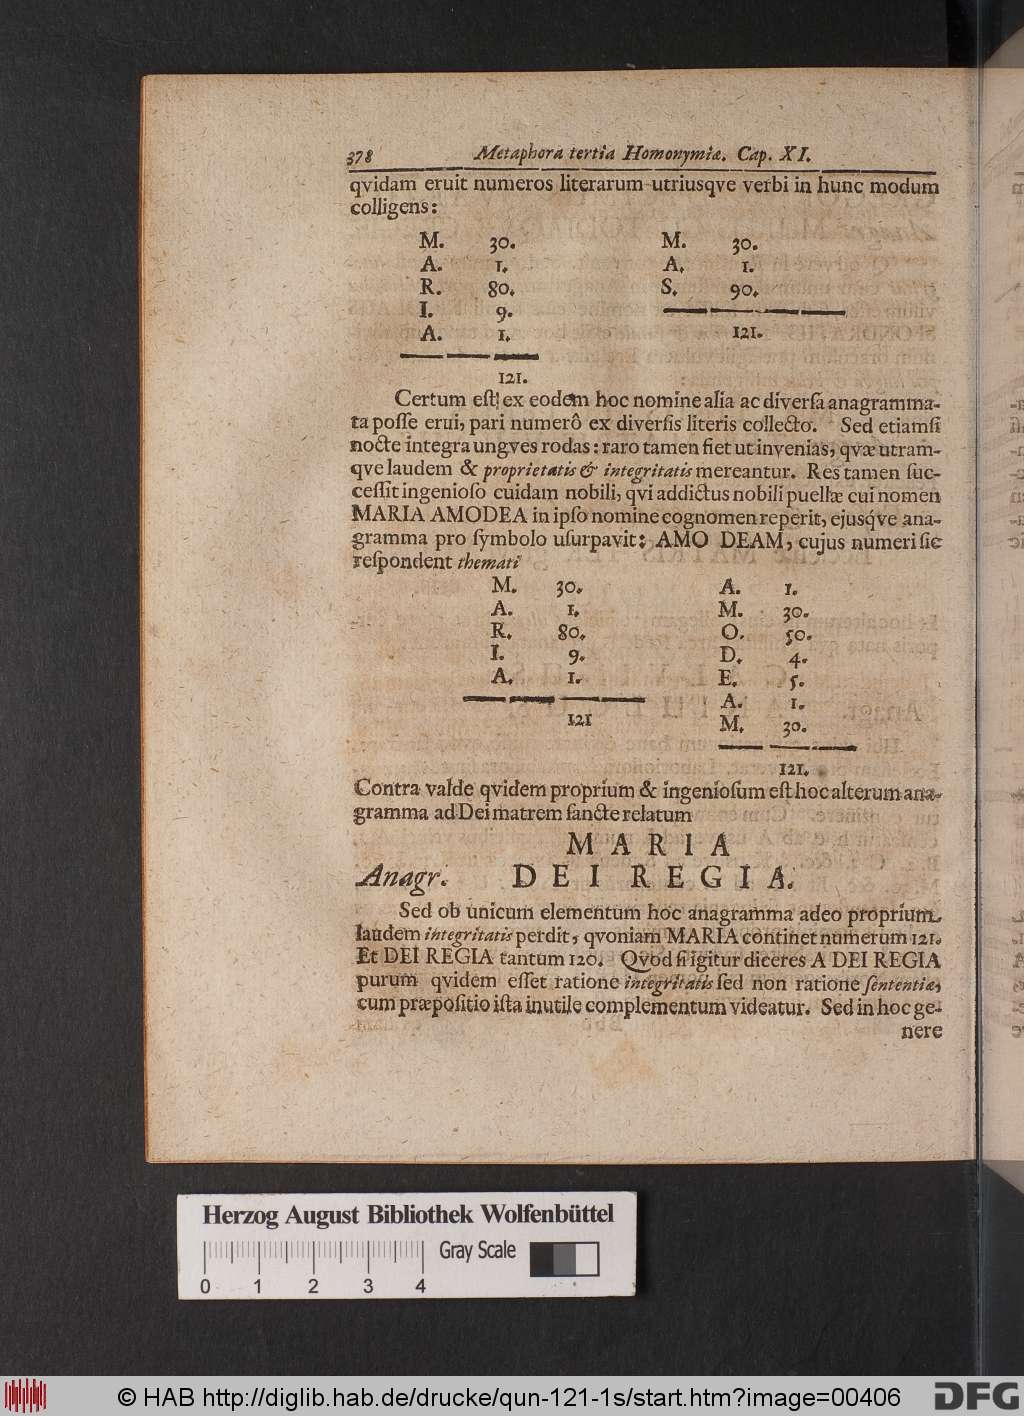 378 Metaphora tertia Homonymiæ. Cap. XI.
qvidam eruit numeros literarum utriusqve verbi in hunc modum
colligens:
M. 30. M. 30.
A. 1. A. 1.
R. 80. S. 90.
I. 9. 121.
A. 1.
121.
Certum eſt ex eodem hoc nomine alia ac diverſa anagramma-
ta poſſe erui, pari numerô ex diverſis literis collecto. Sed etiamſi
nocte integra ungves rodas: raro tamen fiet ut invenias, qvæ utram-
qve laudem & proprietatis & integritatis mereantur. Res tamen ſuc-
ceſſit ingenioſo cuidam nobili, qvi addictus nobili puellæ cui nomen
MARIA AMODEA in ipſo nomine cognomen reperit, ejusq́ve ana-
gramma pro ſymbolo uſurpavit: AMO DEAM, cujus numeri ſic
reſpondent themati
M. 30. A. 1.
A. 1. M. 30.
R. 80. O. 50.
I. 9. D. 4.
A. 1. E. 5.
121 A. 1.
M. 30.
121.
Contra valde qvidem proprium & ingenioſum eſt hoc alterum ana-
gramma ad Dei matrem ſancte relatum
MARIA
Anagr. DEI REGIA.
Sed ob unicum elementum hoc anagramma adeo proprium
laudem integritatis perdit, qvoniam MARIA continet numerum 121.
Et DEI REGIA tantum 120. Qvod ſi igitur diceres A DEI REGIA
purum qvidem eſſet ratione integritatis ſed non ratione ſententiæ,
cum præpoſitio iſta inutile complementum videatur. Sed in hoc ge-
nere
Herzog August Bibliothek Wolfenbüttel
Gray Scale
0 1 2 3 4
© HAB http://diglib.hab.de/drucke/qun-121-1s/start.htm?image=00406
DFG